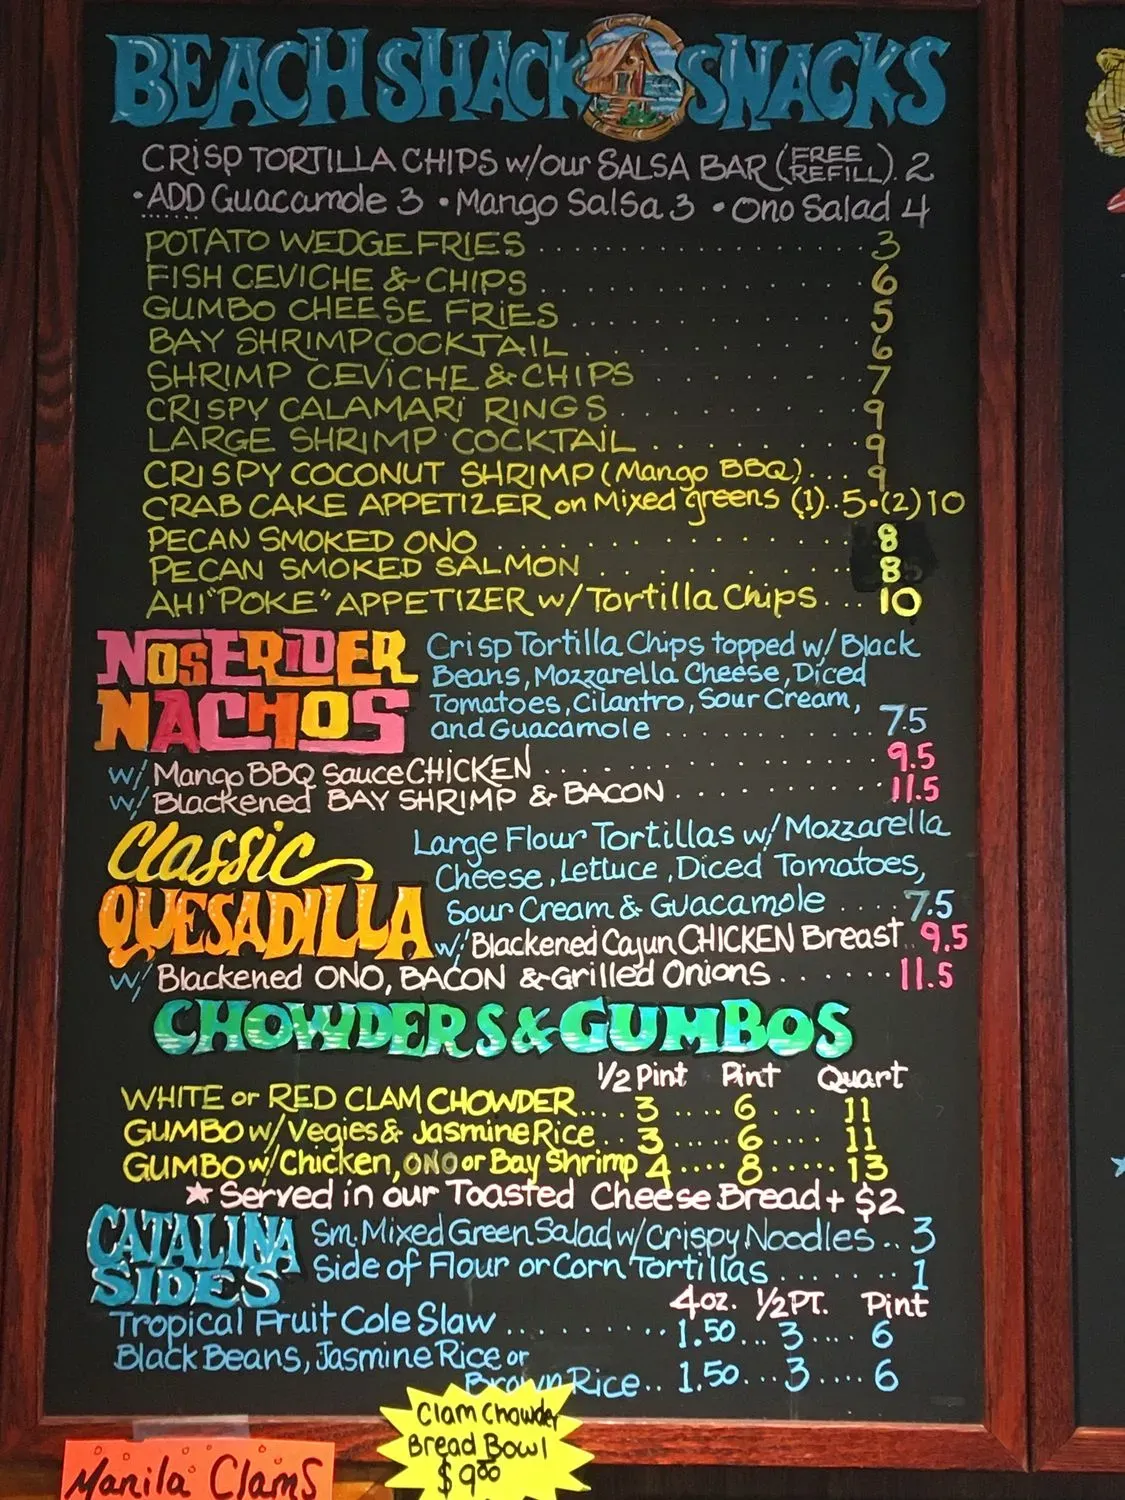 BEACH SHACK SNACKS
CRISP TORTILLA CHIPS w/our SALSA BAR (FREE REFILL). 2
•ADD Guacamole 3 • Mango Salsa 3 • Ono Salad 4
POTATO WEDGE FRIES 3
FISH CEVICHE & CHIPS 6
GUMBO CHEESE FRIES 5
BAY SHRIMP COCKTAIL 6
SHRIMP CEVICHE & CHIPS 7
CRISPY CALAMARI RINGS 9
LARGE SHRIMP COCKTAIL 9
CRISPY COCONUT SHRIMP (Mango BBQ) 9
CRAB CAKE APPETIZER on Mixed greens (1)..5•(2)10
PECAN SMOKED ONO 8
PECAN SMOKED SALMON 8
AHI "POKE" APPETIZER w/Tortilla Chips... 10
NOSERIDER NACHOS
Crisp Tortilla Chips topped w/ Black
Beans, Mozzarella Cheese, Diced
Tomatoes, Cilantro, Sour Cream,
and Guacamole 7.5
w/ Mango BBQ Sauce CHICKEN 9.5
w/ Blackened BAY SHRIMP & BACON 11.5
Classic QUESADILLA
Large Flour Tortillas w/ Mozzarella
Cheese, Lettuce, Diced Tomatoes,
Sour Cream & Guacamole .... 7.5
w/ Blackened Cajun CHICKEN Breast.. 9.5
w/ Blackened ONO, BACON & Grilled Onions 11.5
CHOWDERS & GUMBOS
1/2 Pint Pint Quart
WHITE or RED CLAM CHOWDER.... 3 ..... 6 .... 11
GUMBO w/ Vegies & Jasmine Rice... 3 ..... 6 ..... 11
GUMBO w/ Chicken, ONO or Bay Shrimp 4 ..... 8 ...... 13
★ Served in our Toasted Cheese Bread + $2
CATALINA SIDES
Sm. Mixed Green Salad w/Crispy Noodles .. 3
Side of Flour or Corn Tortillas 1
4oz. 1/2 PT. Pint
Tropical Fruit Cole Slaw 1.50... 3 .... 6
Black Beans, Jasmine Rice or
Brown Rice.. 1.50... 3 .... 6
Clam Chowder
Bread Bowl
$9.00
Manila Clams